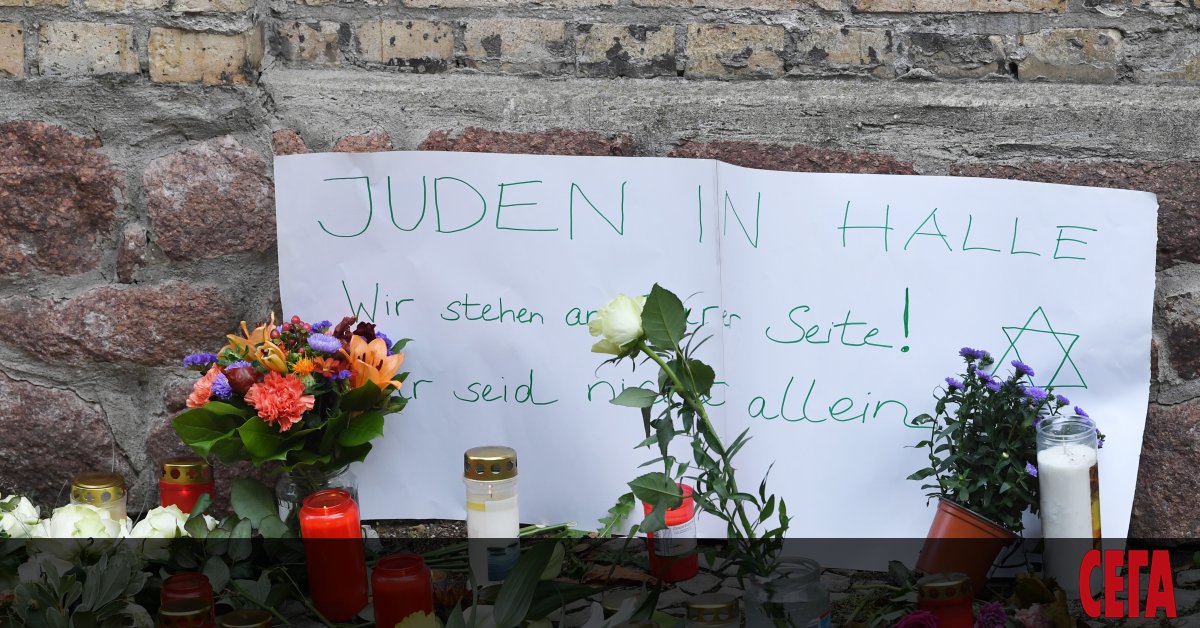 JUDEN IN HALLE
Wir stehen an Seite!
seid allein
СЕГА